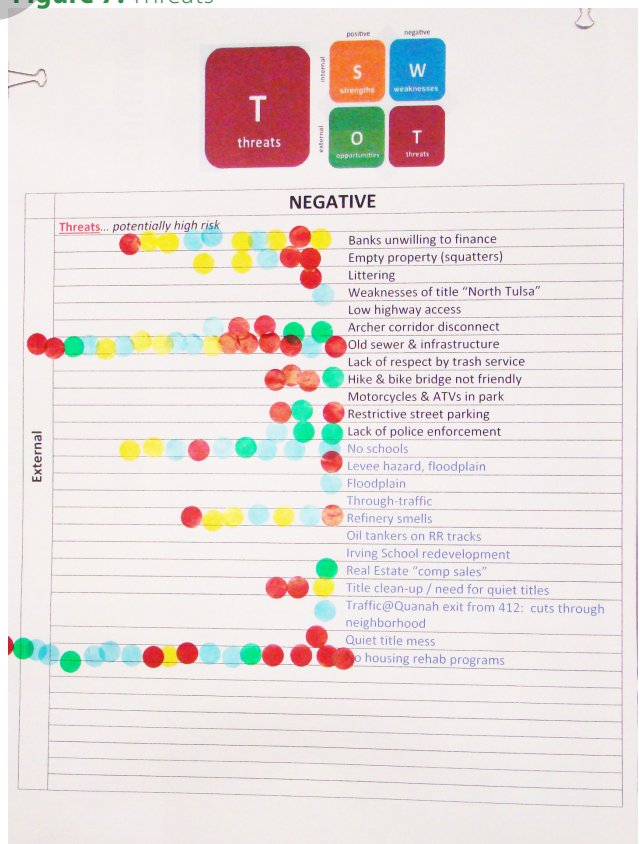 Figure 7. Threats
positive
negative
internal
S
strengths
W
weaknesses
T
threats
external
O
opportunities
T
threats
NEGATIVE
Threats... potentially high risk
External
Banks unwilling to finance
Empty property (squatters)
Littering
Weaknesses of title “North Tulsa”
Low highway access
Archer corridor disconnect
Old sewer & infrastructure
Lack of respect by trash service
Hike & bike bridge not friendly
Motorcycles & ATVs in park
Restrictive street parking
Lack of police enforcement
No schools
Levee hazard, floodplain
Floodplain
Through-traffic
Refinery smells
Oil tankers on RR tracks
Irving School redevelopment
Real Estate “comp sales”
Title clean-up / need for quiet titles
Traffic@Quanah exit from 412: cuts through
neighborhood
Quiet title mess
No housing rehab programs